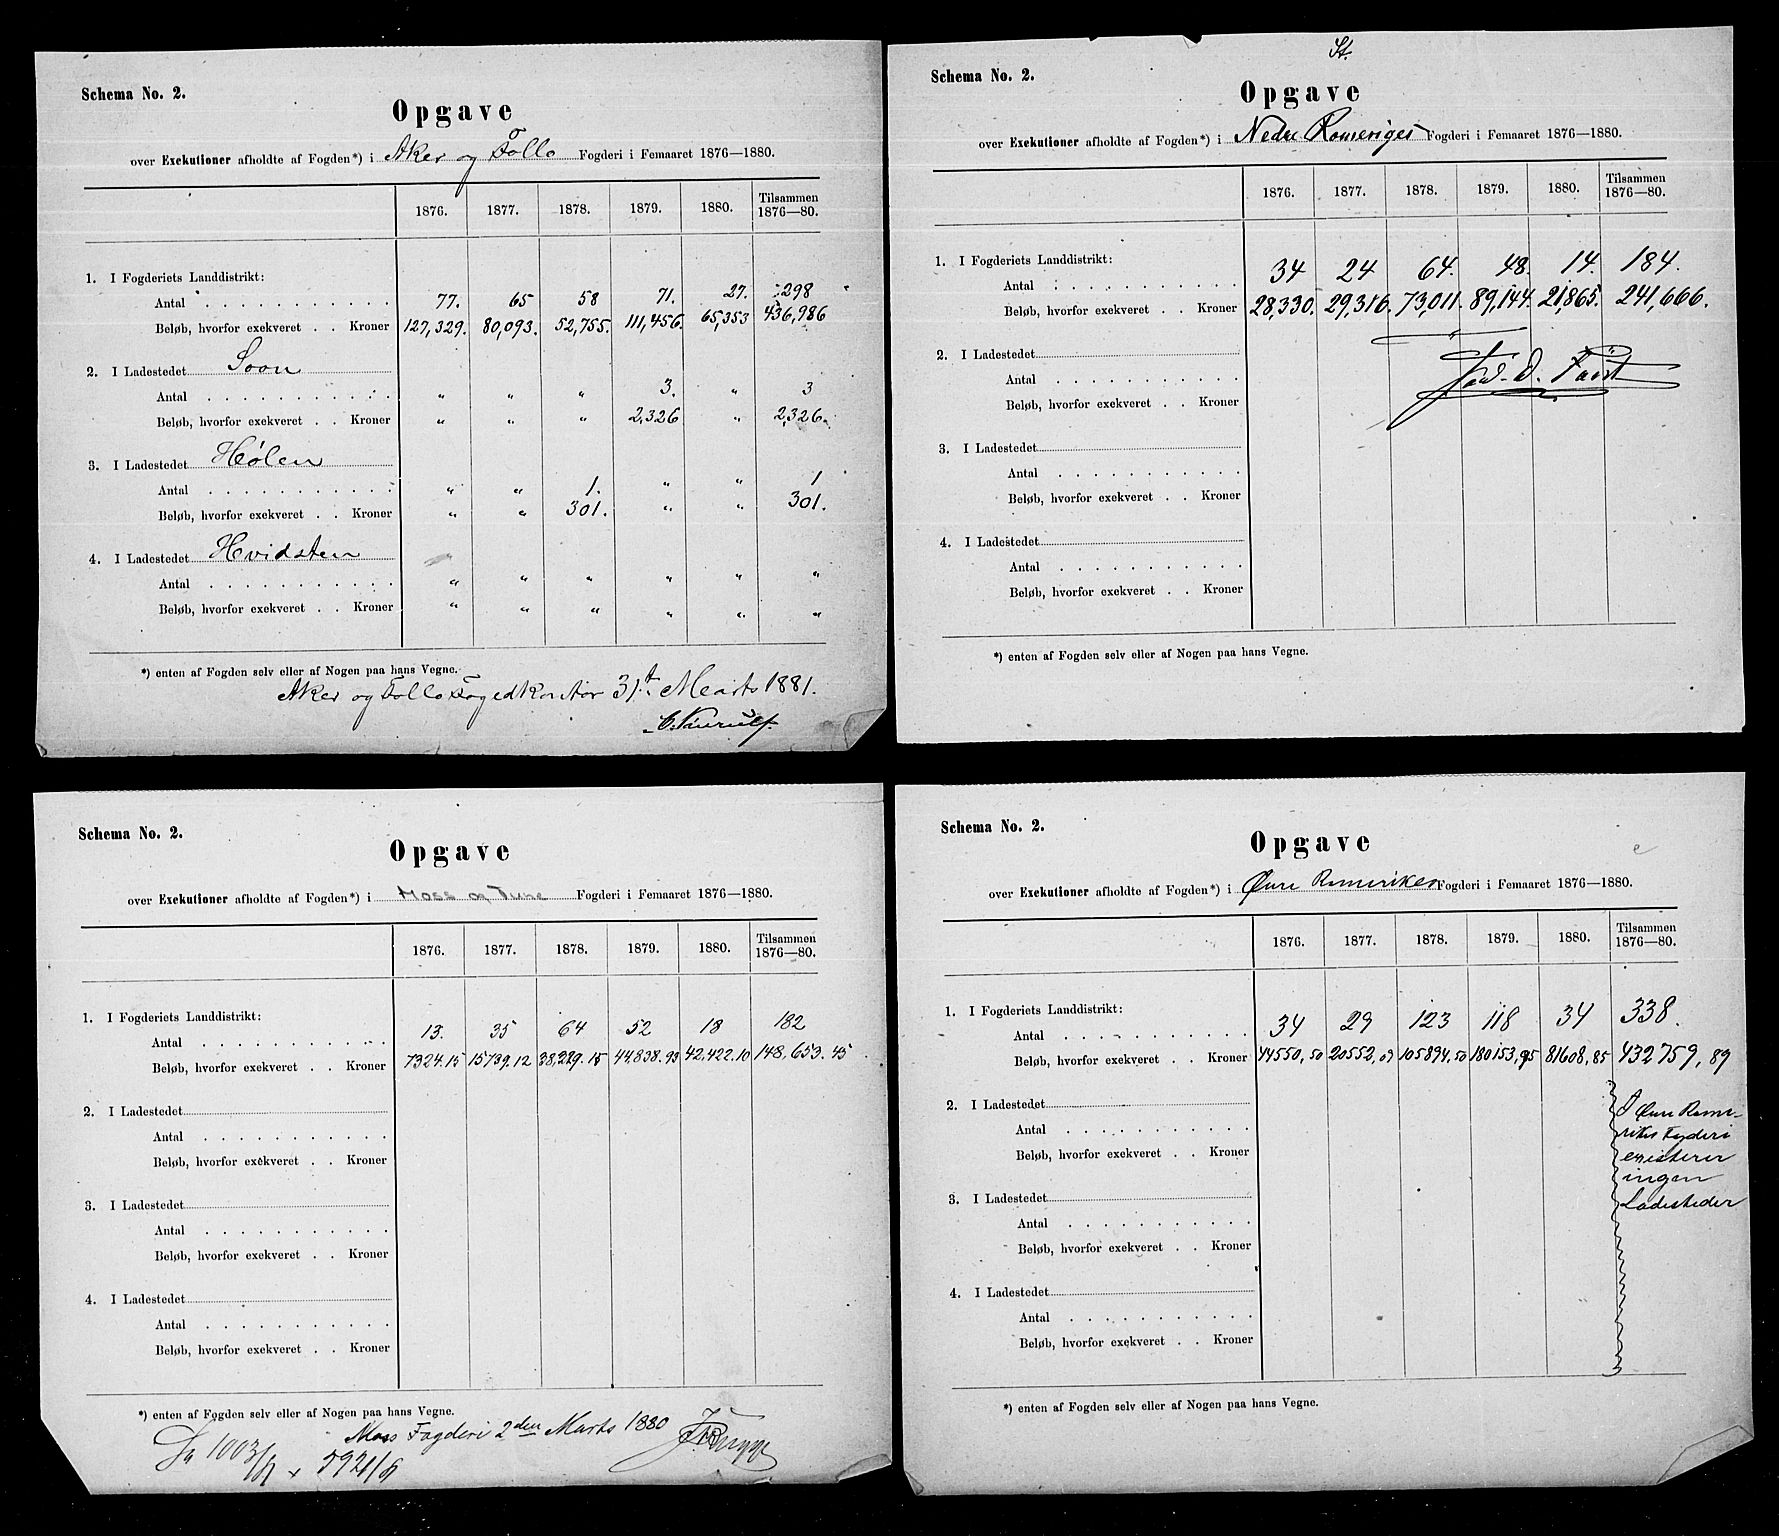 Schema No. 2.
Opgave
over Exekutioner afholdte af Fogden*) i Aker og Follo Fogderi i Femaaret 1876—1880.
1876. 1877. 1878. 1879. 1880. Tilsammen 1876—80.
1. I Fogderiets Landdistrikt:
Antal . . . . . . . . . . . 77. 65 58 71. 27. 298
Beløb, hvorfor exekveret . . Kroner 127,329. 80,093. 52,755. 111,456. 65,353 436,986
2. I Ladestedet Soon
Antal . . . . . . . . . . . „ „ „ 3. „ 3
Beløb, hvorfor exekveret . . Kroner „ „ „ 2,326 „ 2,326.
3. I Ladestedet Hølen
Antal . . . . . . . . . . . „ „ 1. „ „ 1
Beløb, hvorfor exekveret . . Kroner „ „ 301. „ „ 301.
4. I Ladestedet Hvidsten
Antal . . . . . . . . . . . „ „ „ „ „ „
Beløb, hvorfor exekveret . . Kroner „ „ „ „ „ „
*) enten af Fogden selv eller af Nogen paa hans Vegne.
Aker og Follo Fogedkontor 31te Marts 1881.
St.
Schema No. 2.
Opgave
over Exekutioner afholdte af Fogden*) i Nedre Romeriges Fogderi i Femaaret 1876—1880.
1876. 1877. 1878. 1879. 1880. Tilsammen 1876—80.
1. I Fogderiets Landdistrikt:
Antal . . . . . . . . . . . 34 24 64. 48. 14. 184.
Beløb, hvorfor exekveret . . Kroner 28,330. 29,316. 73,011. 89,144. 21,865. 241,666.
2. I Ladestedet
Antal . . . . . . . . . . .
Beløb, hvorfor exekveret . . Kroner
3. I Ladestedet
Antal . . . . . . . . . . .
Beløb, hvorfor exekveret . . Kroner
4. I Ladestedet
Antal . . . . . . . . . . .
Beløb, hvorfor exekveret . . Kroner
*) enten af Fogden selv eller af Nogen paa hans Vegne.
Schema No. 2.
Opgave
over Exekutioner afholdte af Fogden*) i Moss og Tune Fogderi i Femaaret 1876—1880.
1876. 1877. 1878. 1879. 1880. Tilsammen 1876—80.
1. I Fogderiets Landdistrikt:
Antal . . . . . . . . . . . 13. 35 64 52 18 182
Beløb, hvorfor exekveret . . Kroner 7324.15 15739.12 38,329.15 44838.93 42,422.10 148,653.45
2. I Ladestedet
Antal . . . . . . . . . . .
Beløb, hvorfor exekveret . . Kroner
3. I Ladestedet
Antal . . . . . . . . . . .
Beløb, hvorfor exekveret . . Kroner
4. I Ladestedet
Antal . . . . . . . . . . .
Beløb, hvorfor exekveret . . Kroner
*) enten af Fogden selv eller af Nogen paa hans Vegne.
Moss Fogderi 2den Marts 1880
Schema No. 2.
Opgave
over Exekutioner afholdte af Fogden*) i Øvre Romerikes Fogderi i Femaaret 1876—1880.
1876. 1877. 1878. 1879. 1880. Tilsammen 1876—80.
1. I Fogderiets Landdistrikt:
Antal . . . . . . . . . . . 34 29 123 118 34 338.
Beløb, hvorfor exekveret . . Kroner 44550,50 20552,09 105894,50 180153,95 81608,85 432759,89
2. I Ladestedet
Antal . . . . . . . . . . .
Beløb, hvorfor exekveret . . Kroner
3. I Ladestedet
Antal . . . . . . . . . . .
Beløb, hvorfor exekveret . . Kroner
4. I Ladestedet
Antal . . . . . . . . . . .
Beløb, hvorfor exekveret . . Kroner
I Øvre Rome-
rikes Fogderi
existerer
ingen
Ladesteder
*) enten af Fogden selv eller af Nogen paa hans Vegne.